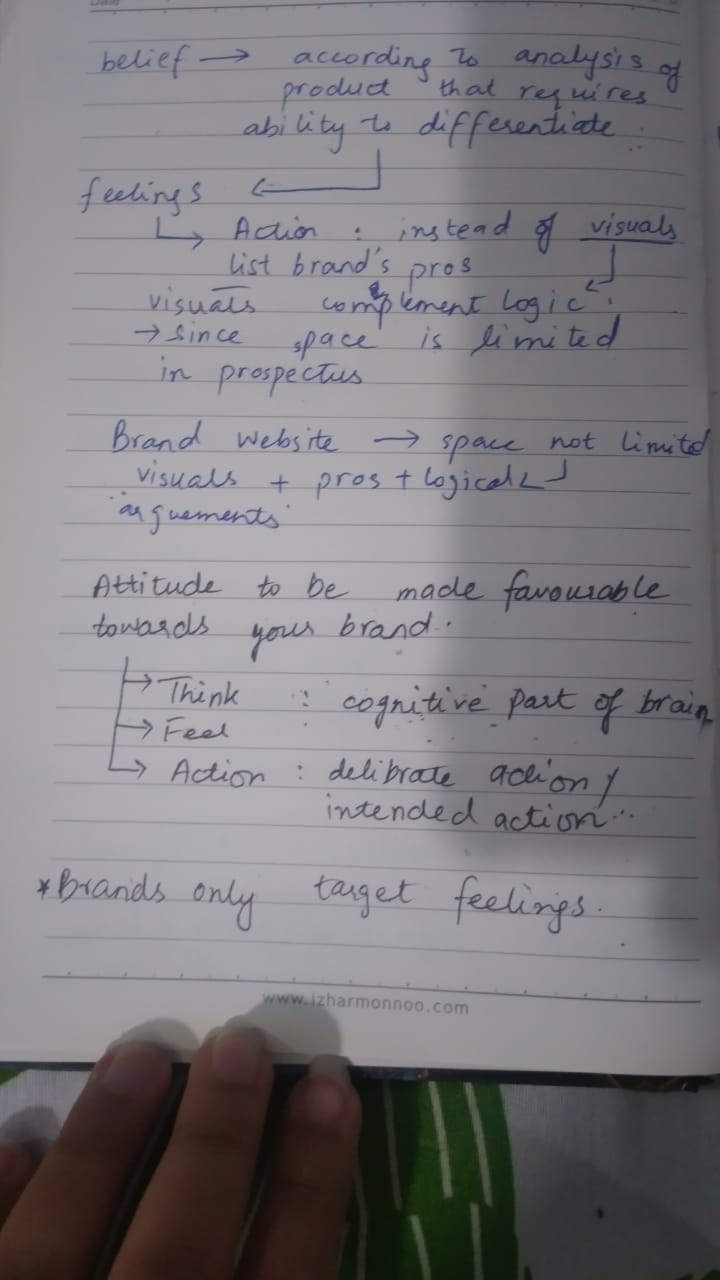 belief → according to analysis of
product that requires
ability to differentiate
feelings ←
↳ Action : instead of visuals
list brand's pros
visuals complement logic.
→ since space is limited
in prospectus
Brand website → space not limited
visuals + pros + logical ↵
arguements
Attitude to be made favourable
towards your brand.
→ Think : cognitive part of brain
→ Feel
→ Action : delibrate action/
intended action..
*Brands only target feelings.
www.izharmonnoo.com